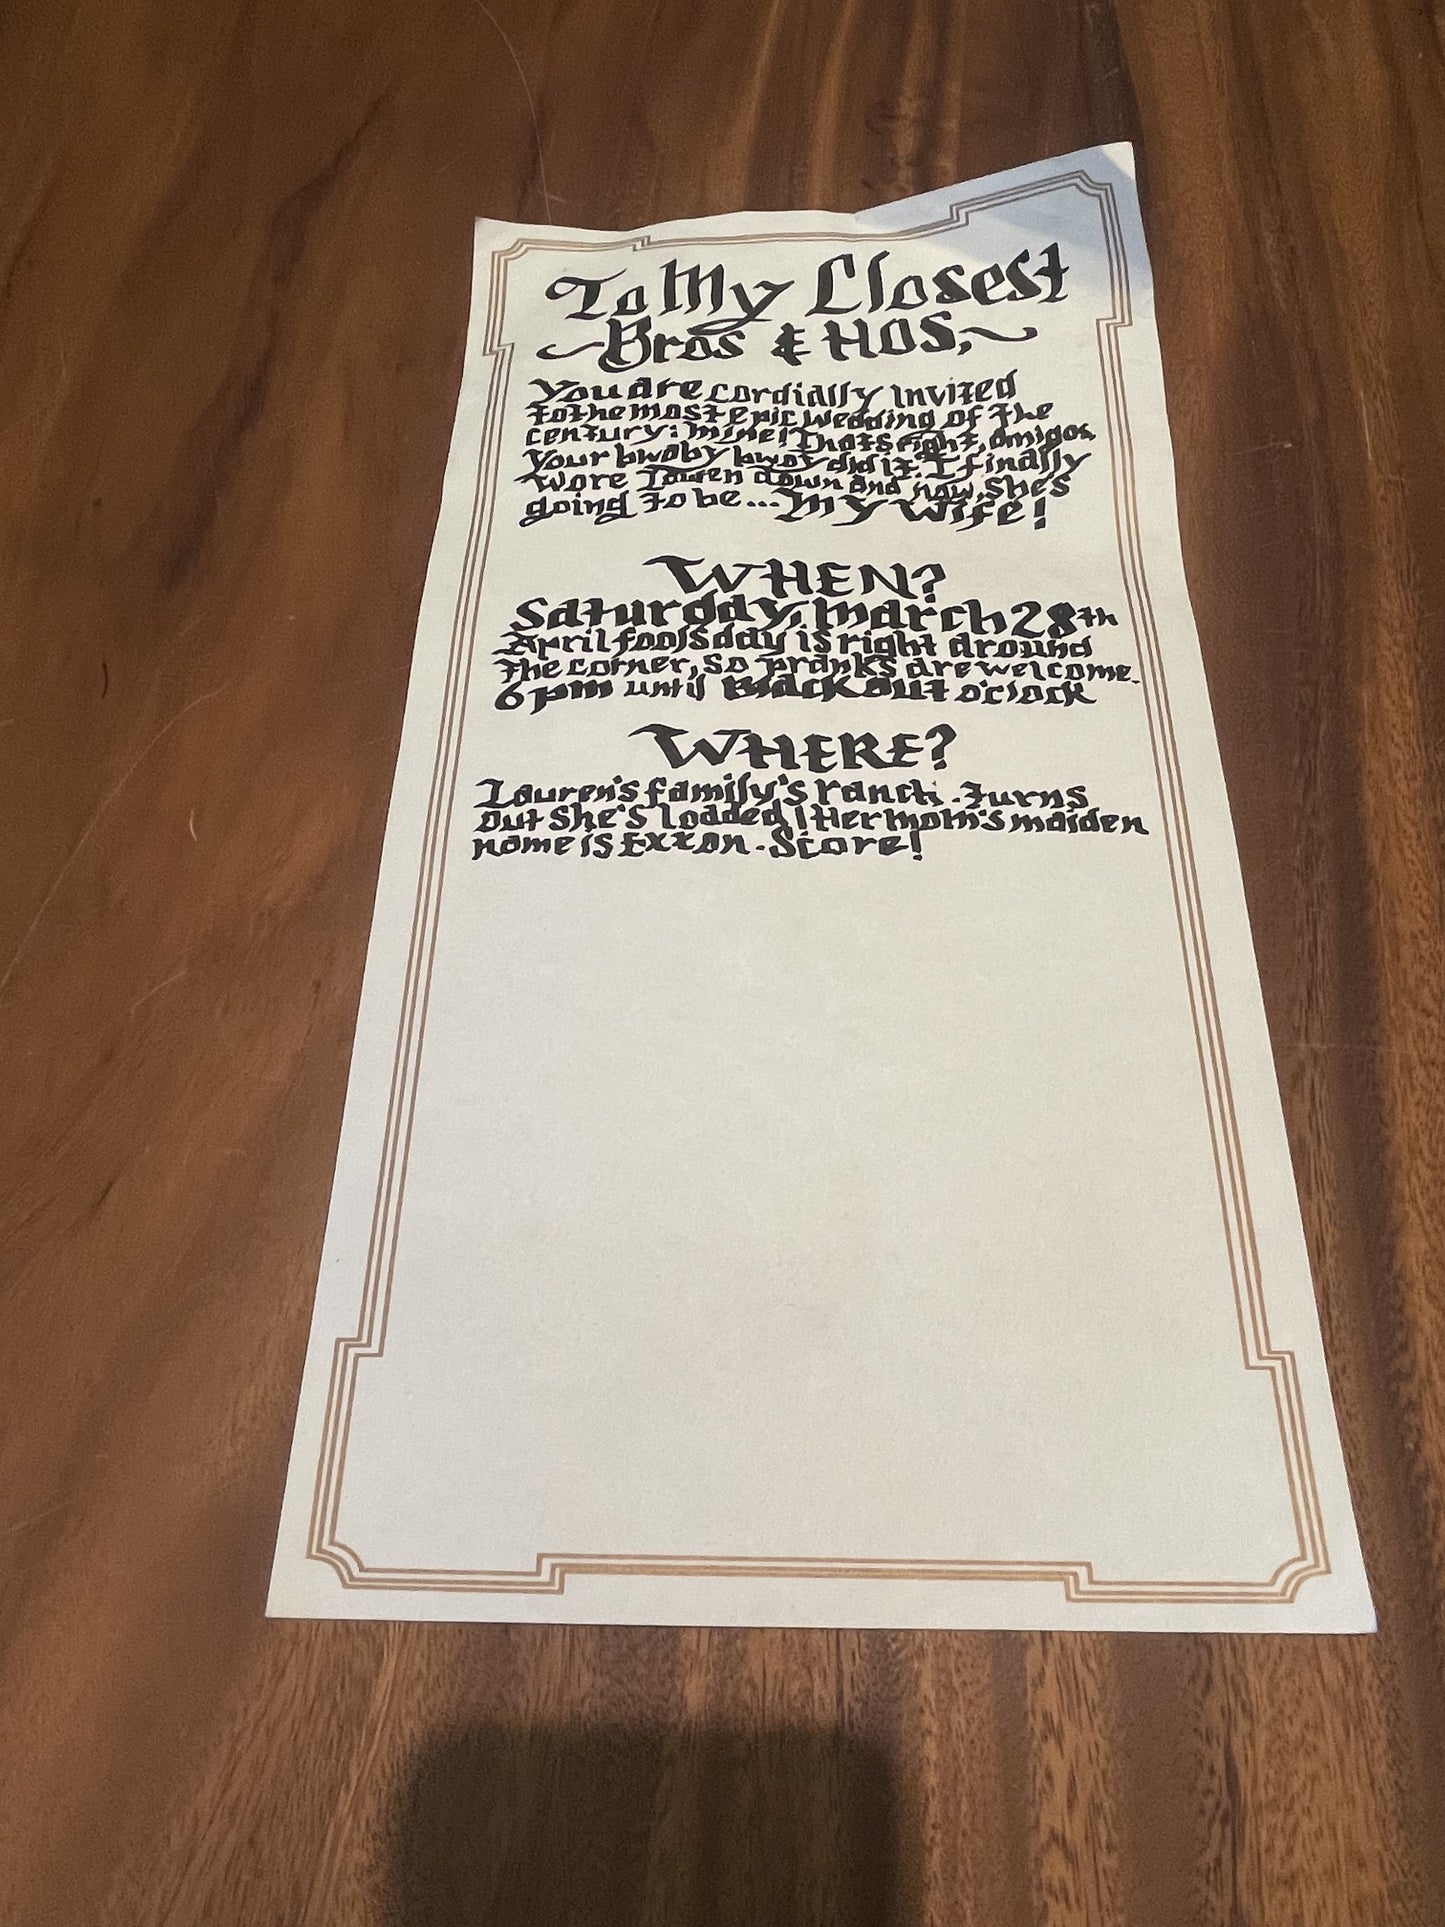 To My Closest
~Bros & HOS,~
You are cordially Invited
to the most epic wedding of the
century: mine! Thats right, amigos,
Your bwoby bwoy did it. I finally
wore Lauren down and now, she's
going to be... My Wife!
WHEN?
Saturday, March 28th
April fools day is right around
the corner, so pranks are welcome.
6 pm until Blackout o'clock
WHERE?
Lauren's family's ranch. Turns
out she's loaded! Her mom's maiden
name is Exxon. Score!